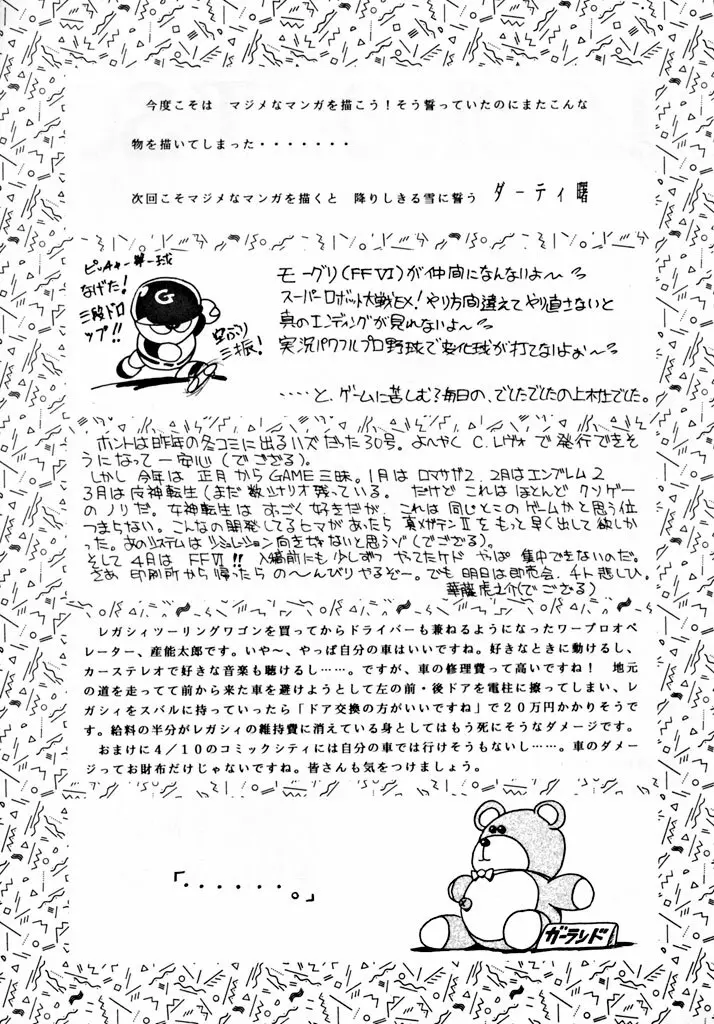 今度こそは　マジメなマンガを描こう！そう誓っていたのにまたこんな
物を描いてしまった・・・・・・・
次回こそマジメなマンガを描くと　降りしきる雪に誓う　ダーティ曙
ピッチャー第一球
なげた！
三段ドロ
ップ!!
G
空ぶり
三振！
モーグリ(FFⅥ)が仲間になんないよ〜
スーパーロボット大戦EX！やり方間違えてやり直さないと
真のエンディングが見れないよ〜
実況パワフルプロ野球で変化球が打てないよぉ〜
・・・・と、ゲームに苦しむ毎日の、でしたでしたの上木仕でした。
ホントは昨年の冬コミに出るハズだった30号。よーやく C.レヴォ で発行できそ
うになって一安心(でござる)。
しかし 今年は 正月からGAME三昧。1月は ロマサガ2、2月はエンブレム2
3月は女神転生(まだ数シナリオ残っている。 だけど これは ほとんど クソゲー
のノリだ。女神転生は すごく 好きだが、これは同じとこの ゲームかと思う位
つまらない。こんなの開発してるヒマがあったら 真メガテンⅡを もっと早く出して欲しか
った。あのシステムは シミュレーション向きじゃないと思うゾ(でござる)。
そして 4月は FFⅥ!! 入稿前にも少しずつ やってたケド やっぱ 集中できないのだ。
さあ 印刷所から帰ったら の〜んびりやるぞー。でも 明日は即売会。チト 悲しひ。
華龍虎之介(でござる)
レガシィツーリングワゴンを買ってからドライバーも兼ねるようになったワープロオペ
レーター、産能太郎です。いや〜、やっぱ自分の車はいいですね。好きなときに動けるし、
カーステレオで好きな音楽も聴けるし……。ですが、車の修理費って高いですね！　地元
の道を走ってて前から来た車を避けようとして左の前・後ドアを電柱に擦ってしまい、レ
ガシィをスバルに持っていったら「ドア交換の方がいいですね」で２０万円かかりそうで
す。給料の半分がレガシィの維持費に消えている身としてはもう死にそうなダメージです。
おまけに４／１０のコミックシティには自分の車では行けそうもないし……。車のダメー
ジってお財布だけじゃないですね。皆さんも気をつけましょう。
「・・・・・・。」
ガーランド